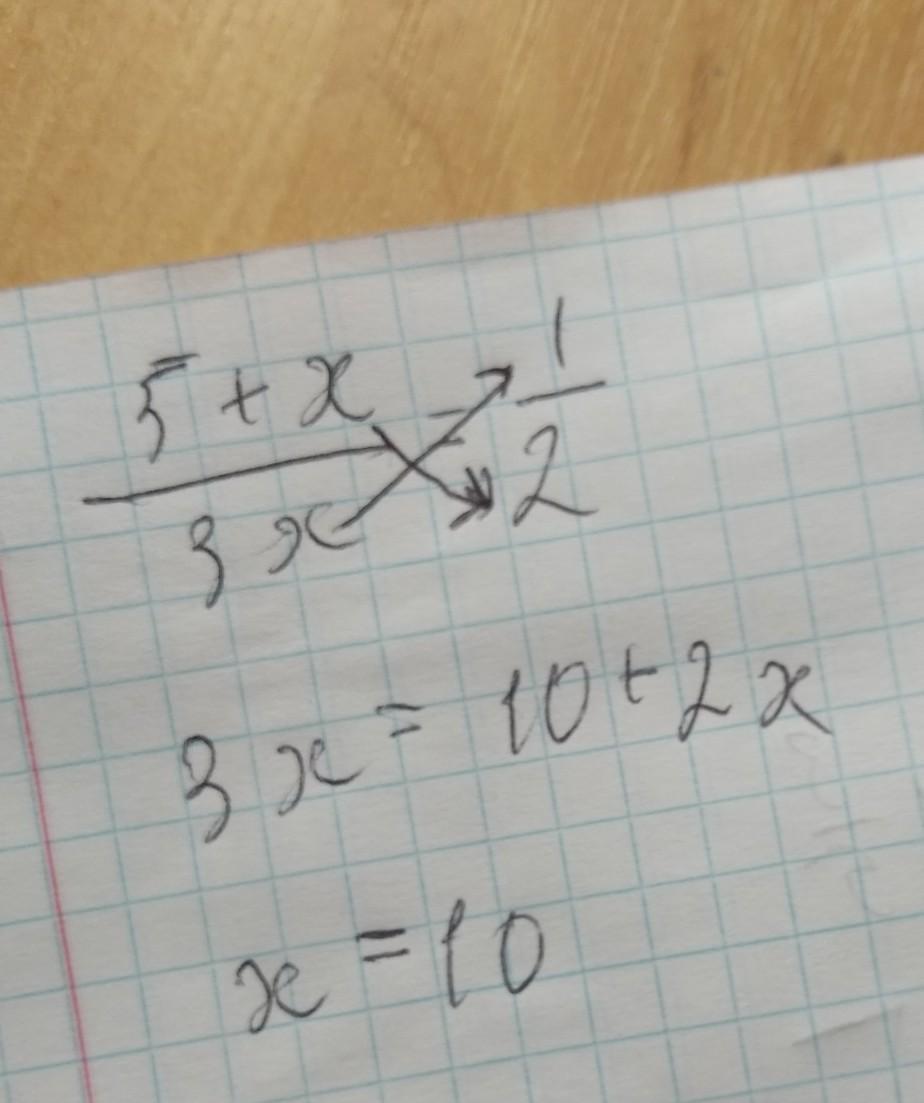 5 + x / 3x = 1 / 2
3x = 10 + 2x
x = 10